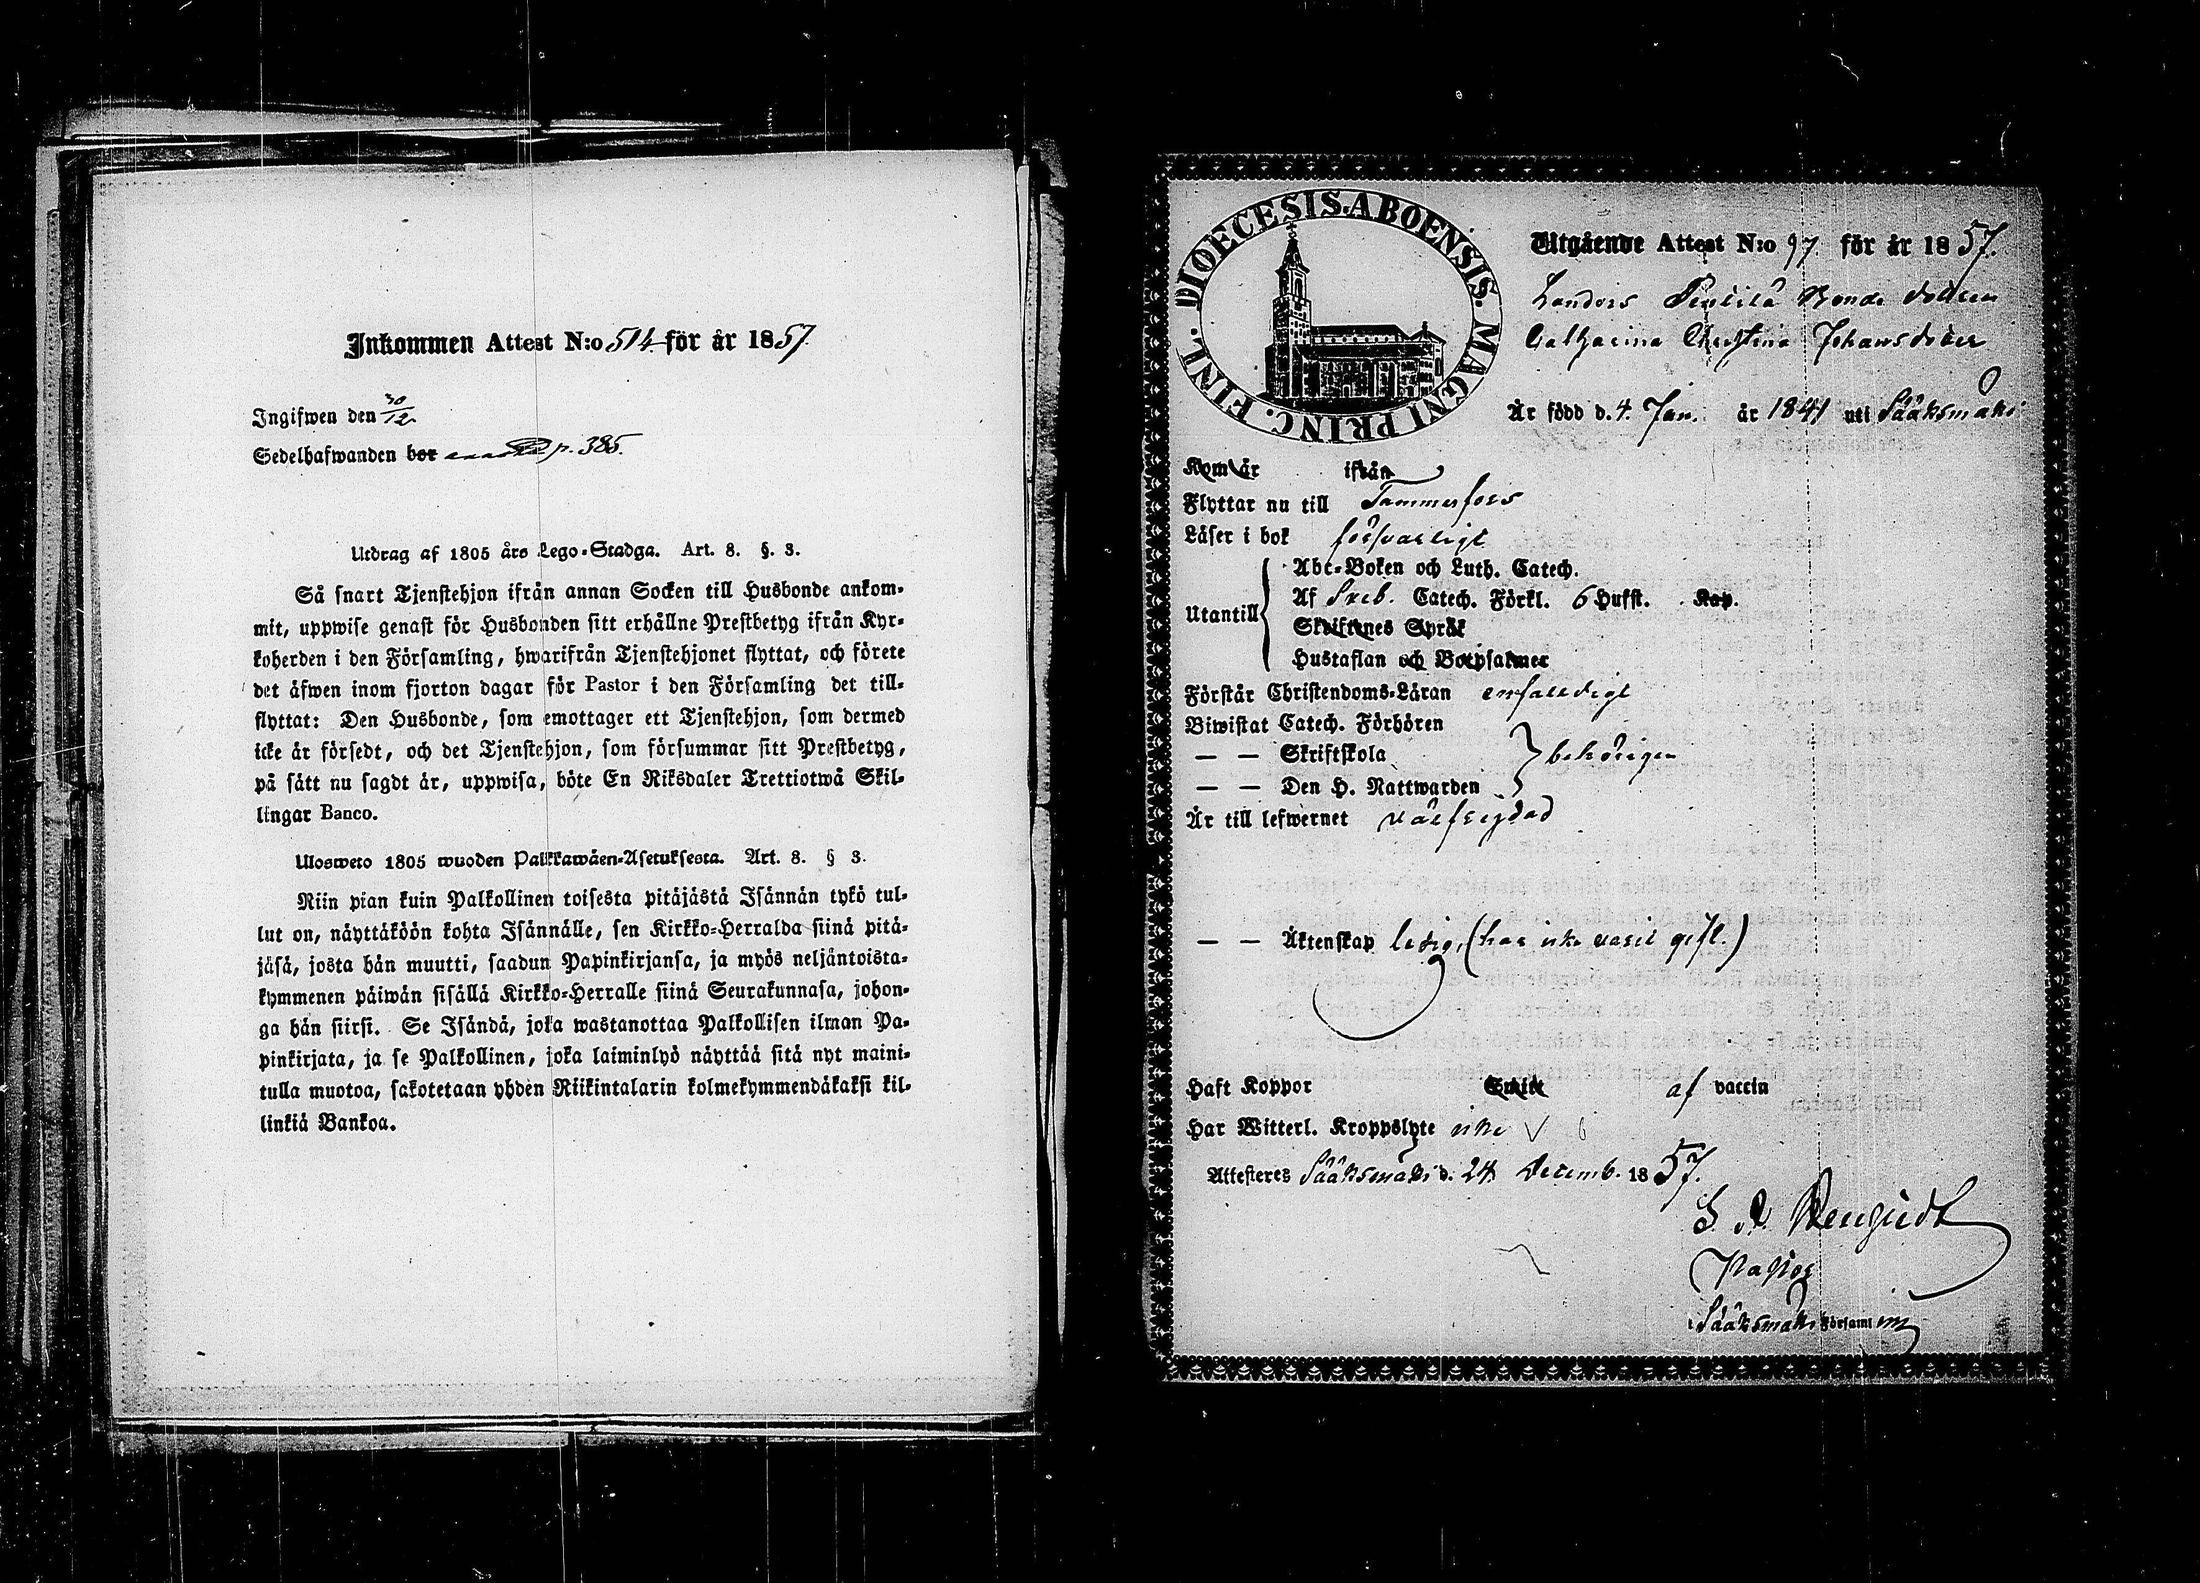 Inkommen Attest N:o 514 för år 1857
Ingifwen den 30/12
Sedelhafwanden bor p. 385.
Utdrag af 1805 års Lego-Stadga. Art. 8. §. 3.
Så snart Tjenstehjon ifrån annan Socken till Husbonde ankom-
mit, uppwise genast för Husbonden sitt erhållne Prestbetyg ifrån Kyr-
koherden i den Församling, hwarifrån Tjenstehjonet flyttat, och förete
det äfwen inom fjorton dagar för Pastor i den Församling det till-
flyttat: Den Husbonde, som emottager ett Tjenstehjon, som dermed
icke är försedt, och det Tjenstehjon, som försummar sitt Prestbetyg,
på sätt nu sagdt är, uppwisa, böte En Riksdaler Trettiotwå Skil-
lingar Banco.
Ulosweto 1805 wuoden Palkkawäen-Asetuksesta. Art. 8. § 3.
Niin pian kuin Palkollinen toisesta pitäjästä Isännän tykö tul-
lut on, näyttäköön kohta Isännälle, sen Kirkko-Herralda siinä pitä-
jäsä, josta hän muutti, saadun Papinkirjansa, ja myös neljäntoista-
kymmenen päiwän sisällä Kirkko-Herralle siinä Seurakunnasa, johon-
ga hän siirsi. Se Isändä, joka wastanottaa Palkollisen ilman Pa-
pinkirjata, ja se Palkollinen, joka laiminlyö näyttää sitä nyt maini-
tulla muotoa, sakotetaan yhden Riikintalarin kolmekymmendäkaksi kil-
linkiä Bankoa.
DIOECESIS.ABOENSIS. MAGNI PRINC. FINL.
Utgående Attest N:o 97 för år 1857.
Bonde dottren
Catharina Christina Johansdoter
Är född d. 4. Jan. år 1841 uti Sääksmäki
Kom år ifrån
Flyttar nu till Tammerfors
Läser i bok försvarligt
Utantill
Abc-Boken och Luth. Catech.
Af Sveb. Catech. Förkl. 6 Hufst. Kap.
Skriftenes Språk
Hustaflan och Botpsalmer
Förstår Christendoms-Läran enfaldigt
Biwistat Catech. Förhören
— — Skriftskola behörigen
— — Den H. Nattwarden
Är till lefwernet välfreydad
— — Äktenskap ledig, (har icke varit gift.)
Haft Koppor Smitt af vaccin
Har Witterl. Kroppslyte icke
Attesteres Sääksmäki d. 24 Decemb. 1857.
Pastor
i Sääksmäki Församl